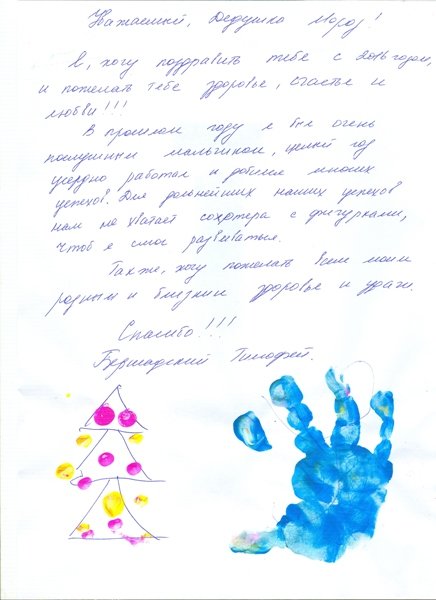 Уважаемый, Дедушка Мороз!
Я, хочу поздравить тебе с 2016 годом,
и пожелать тебе здоровье, счастье и
любви!!!
В прошлом году я был очень
послушным мальчиком, целый год
усердно работал и добился многих
успехов. Для дальнейших наших успехов
нам не хватает сахотера с фигурками,
чтоб я смог развиваться.
Также, хочу пожелать всем моим
родным и близким здоровье и удачи.
Спасибо!!!
Бершадский Тимофей.